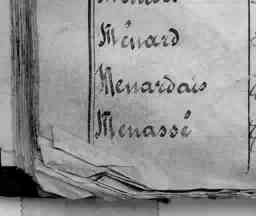 Ménard
Menardais
Menassé